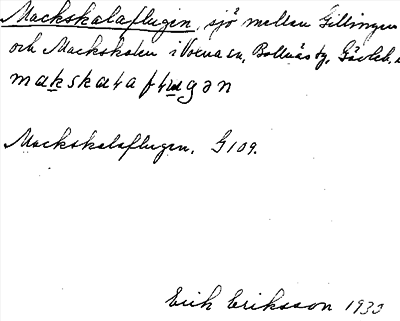 Mackskalaflugen, sjö mellan Gillingen
och Mackskalen i Voxna sn, Bollnäs tg, Gävleb.
makskalaflugən
Mackskalaflugen. G109.
Erik Eriksson 1933